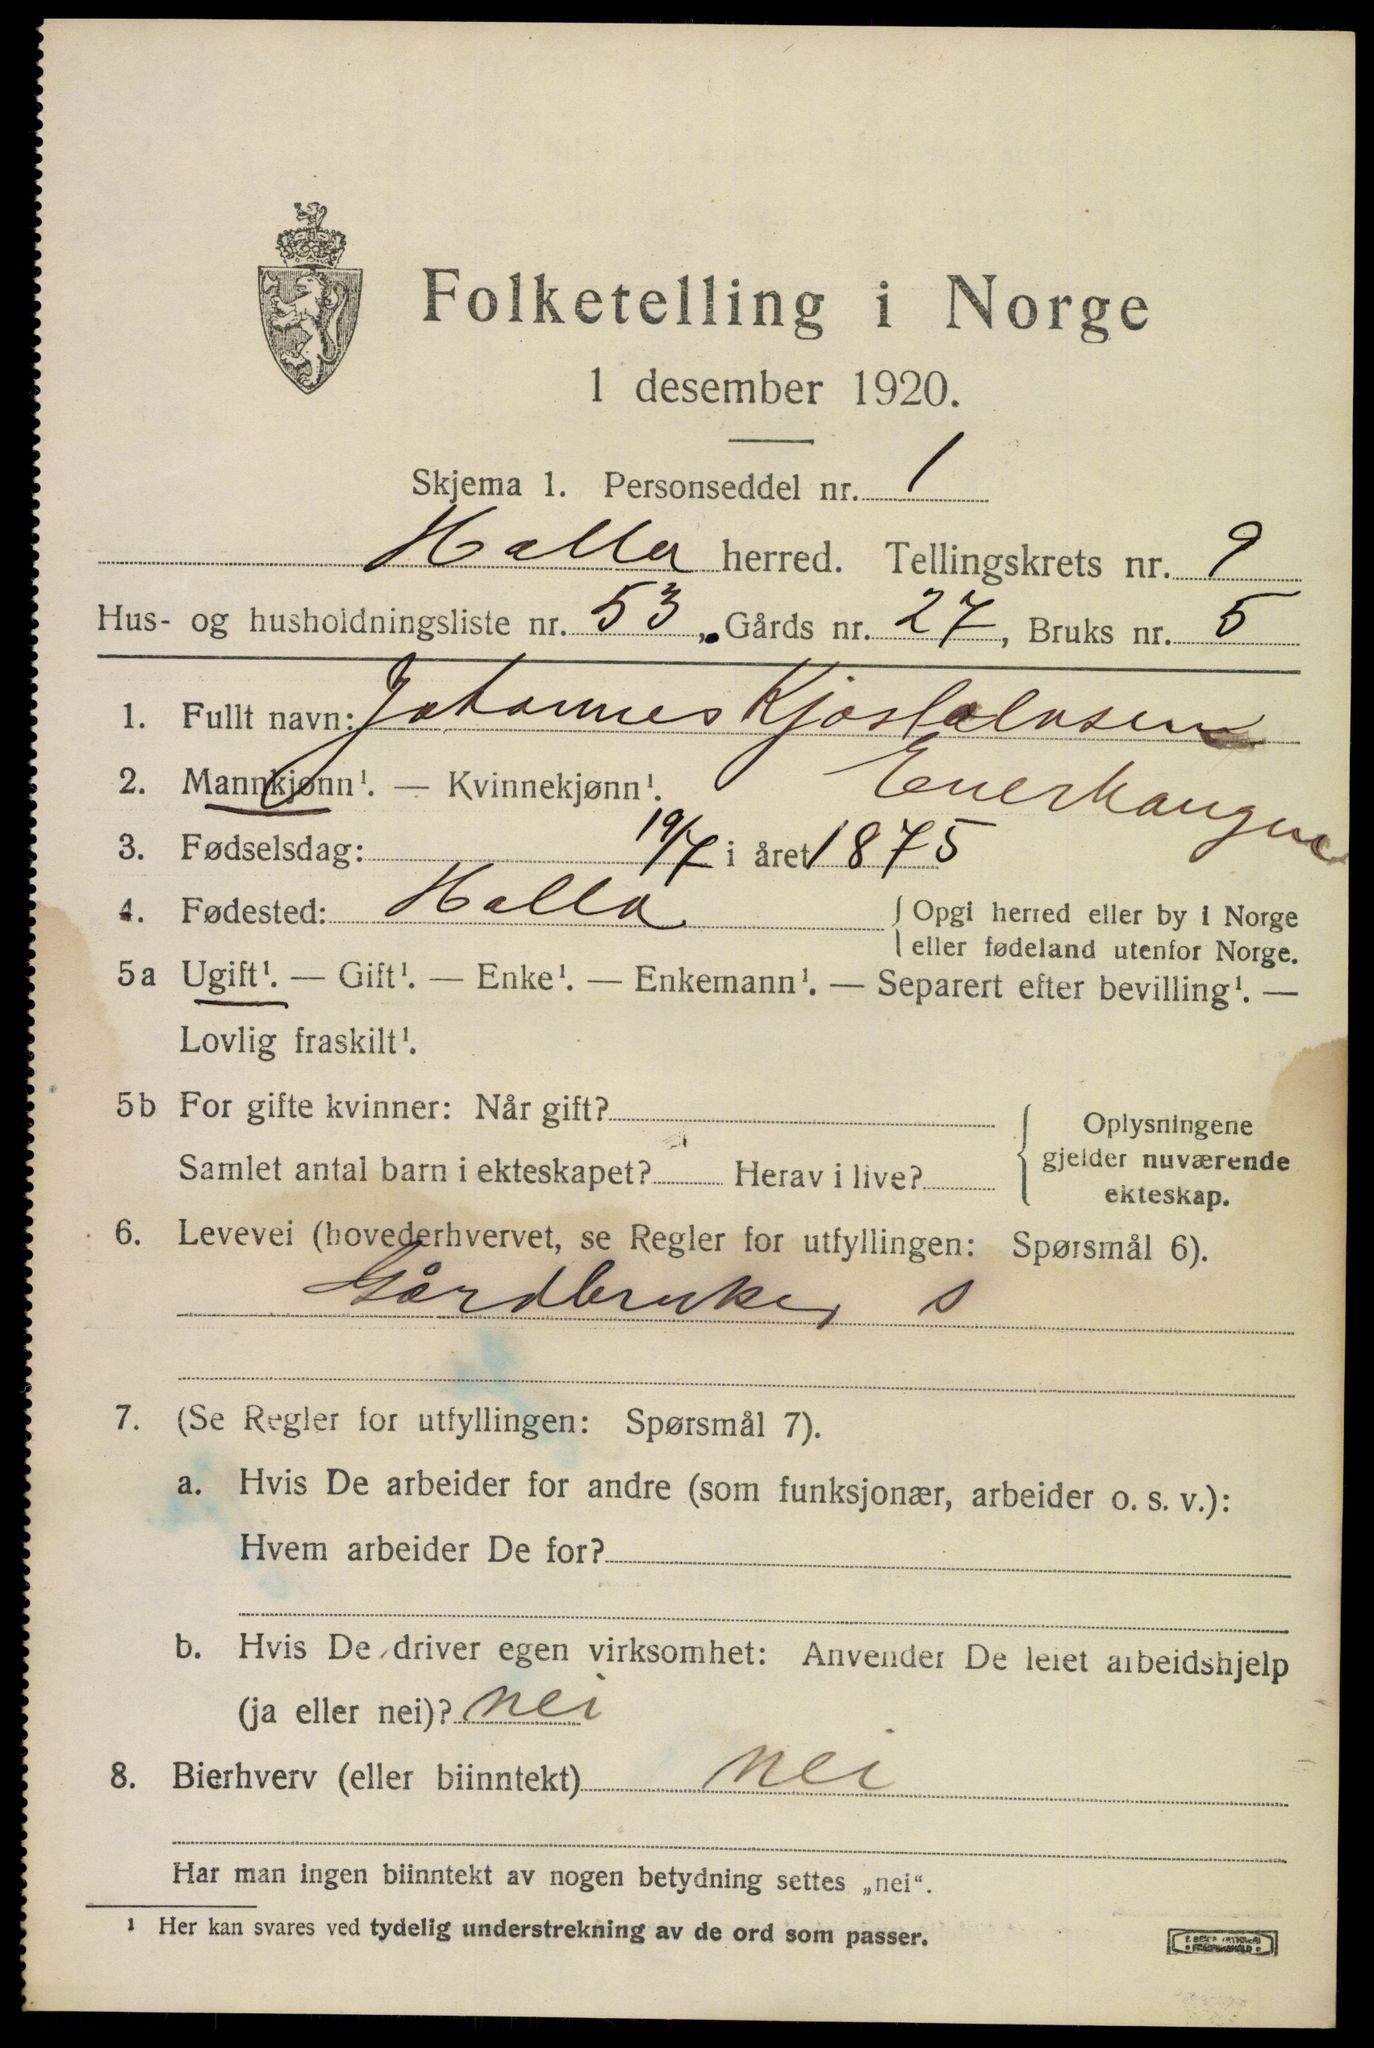 Folketelling i Norge
1 desember 1920.
Skjema 1. Personseddel nr. 1
Holla herred. Tellingskrets nr. 9
Hus- og husholdningsliste nr. 53, Gårds nr. 27, Bruks nr. 5
1. Fullt navn: Johannes
2. Mannkjønn¹. — Kvinnekjønn¹.
3. Fødselsdag: 19/7 i året 1875
4. Fødested: Holla { Opgi herred eller by i Norge
eller fødeland utenfor Norge.
5a Ugift¹. — Gift¹. — Enke¹. — Enkemann¹. — Separert efter bevilling¹. —
Lovlig fraskilt¹.
5b For gifte kvinner: Når gift?
Samlet antal barn i ekteskapet? Herav i live?
{ Oplysningene
gjelder nuværende
ekteskap.
6. Levevei (hovederhvervet, se Regler for utfyllingen: Spørsmål 6).
Gårdbruker s
7. (Se Regler for utfyllingen: Spørsmål 7).
a. Hvis De arbeider for andre (som funksjonær, arbeider o. s. v.):
Hvem arbeider De for?
b. Hvis De driver egen virksomhet: Anvender De leiet arbeidshjelp
(ja eller nei)? nei
8. Bierhverv (eller biinntekt) nei
Har man ingen biinntekt av nogen betydning settes „nei“.
¹ Her kan svares ved tydelig understrekning av de ord som passer.